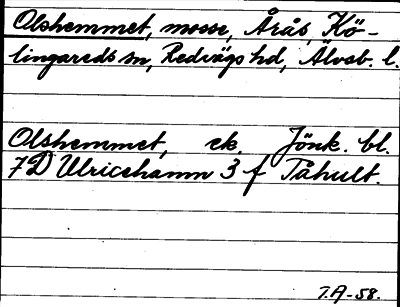 Olshemmet, mosse, Årås, Kö-
lingareds sn, Redvägs hd, Älvsb. l.
Olshemmet, ek. Jönk. bl.
7D Ulricehamn 3 f Tåhult.
T.A-58.